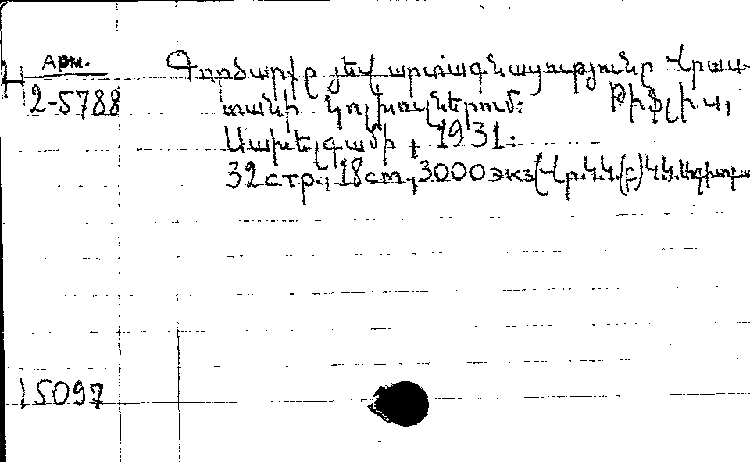 Арм.
2-5788
Գործարքը յեվ արտագնացությունը Վրաս-
տանի կոլխոզներում: Թիֆլիս,
Սախելգամի, 1931:
32 стр., 18 cm, 3000 экз (Վր.Կ.Կ.(բ)Կ Կ.Կ.
15097